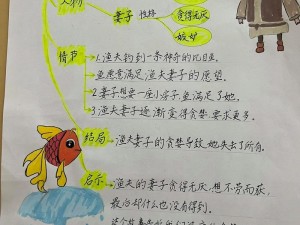 人物
妻子 性格
贪得无厌
情节
1.渔夫钓到一条神奇的比目鱼。
鱼愿意满足渔夫妻子的愿望。
2.妻子想要一座小房子,鱼满足了她。
3.渔夫妻子逐渐变得贪婪,要求更多。
结局 渔夫妻子的贪婪导致,她失去了所有。
启示 渔夫的妻子贪得无厌,想不劳而获,
最后却什么也没有得到。